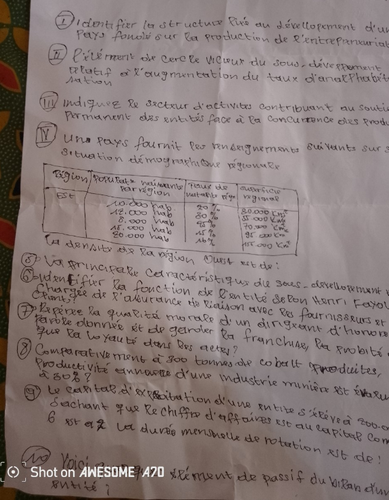 I) Identifier la structure liée au développement d'un
pays fondé sur la production de l'entrepreneuriat
II) l'élément de cercle vicieux du sous-développement
relatif à l'augmentation du taux d'analphabéti
sation
III) Indiquez le secteur d'activité contribuant au soutien
permanent des entités face à la concurrence des produ
IV) Un pays fournit les renseignements suivants sur s
situation démographique régionale
Région Population par région Taux de natalité Superficie régional
Est 10.000 hab 20% 80.000 Km²
12.000 hab 30%
8.000 hab 70.000 Km²
15.000 hab 15%
20.000 hab
La densité de la région Ouest est de :
5) La principale caractéristique du sous-développement
6) Identifier la fonction de l'entité selon Henri Fayol
chargée de l'assurance de liaison avec les fournisseurs et
clients
7) Repérez la qualité morale d'un dirigeant d'honorer
parole donnée et de garder la franchise, la probité
que la loyauté dans les actes?
8) Comparativement à 800 tonnes de cobalt produites,
productivité annuelle d'une industrie minière est évaluée
à 80%?
9) Le capital d'exploitation d'une entité s'élève à
sachant que le chiffre d'affaires est au capital comme
6 est à 2 la durée mensuelle de rotation est de :
10) Voici
élément de passif du bilan d'un
entité ;
Shot on AWESOME A70